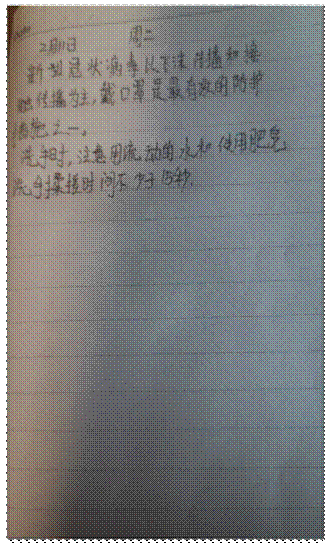 2月11日 周二
新型冠状病毒以飞沫传播和接
触传播为主,戴口罩是最有效的防护
措施之一。
洗手时,注意用流动的水和使用肥皂,
洗手揉搓时间不少于15秒.